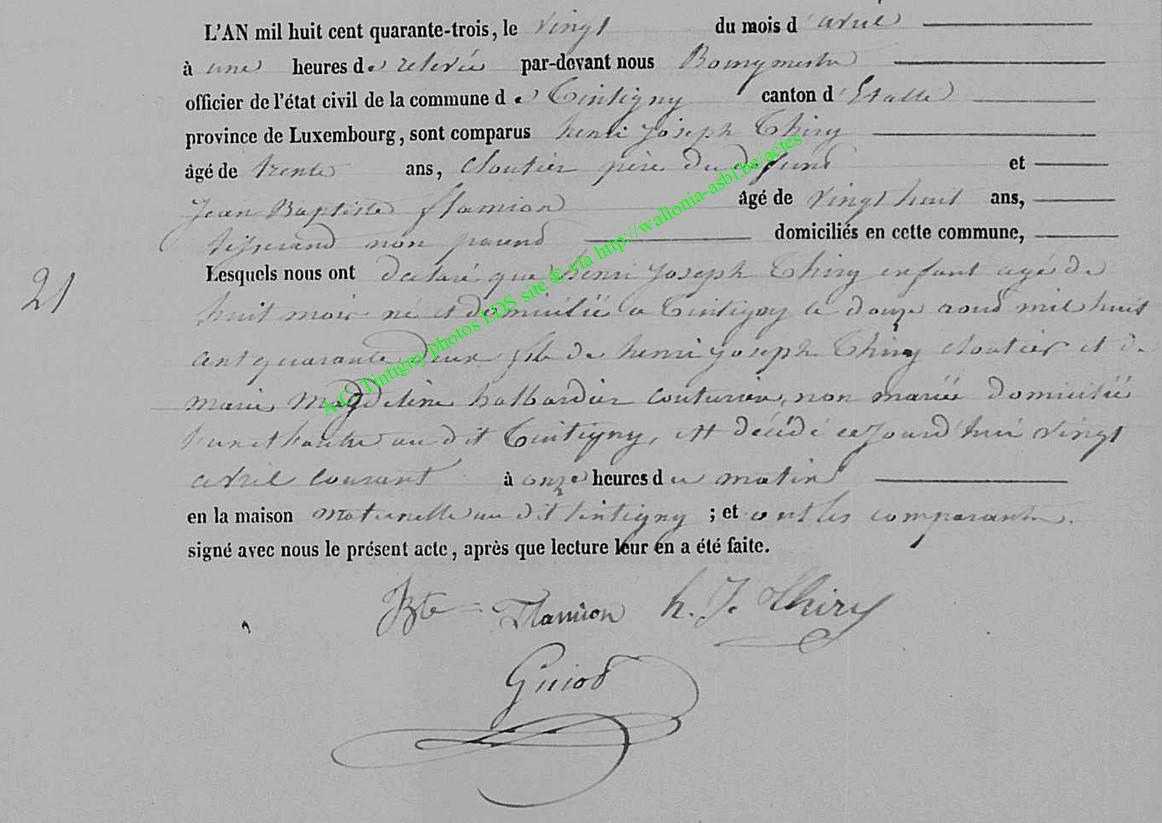 L'AN mil huit cent quarante-trois, le vingt du mois d'avril
à une heures de relevée par-devant nous Bourgmestre
officier de l'état civil de la commune de Tintigny canton d'Etalle
province de Luxembourg, sont comparus henri joseph Thiry
âgé de trente ans, cloutier père du defunt et
Jean Baptiste flamion âgé de vingt huit ans,
tisserand non parend domiciliés en cette commune,
21
Lesquels nous ont declaré que henri joseph Thiry enfant agé de
huit mois né et domicilié a Tintigny le douze aout mil huit
cent quarante deux fils de henri joseph Thiry cloutier et de
marie Magdeleine halbardier couturiere, non mariée domiciliée
l'un et l'autre au dit Tintigny, est décédé cejourd'hui vingt
avril courant à onze heures du matin
en la maison maternelle au dit tintigny ; et ont les comparants
signé avec nous le présent acte, après que lecture leur en a été faite.
Bte flamion h. J. Thiry
Guiot
A.C. Tintigny photos LDS site @ via http://wallonia-asbl.be/actes